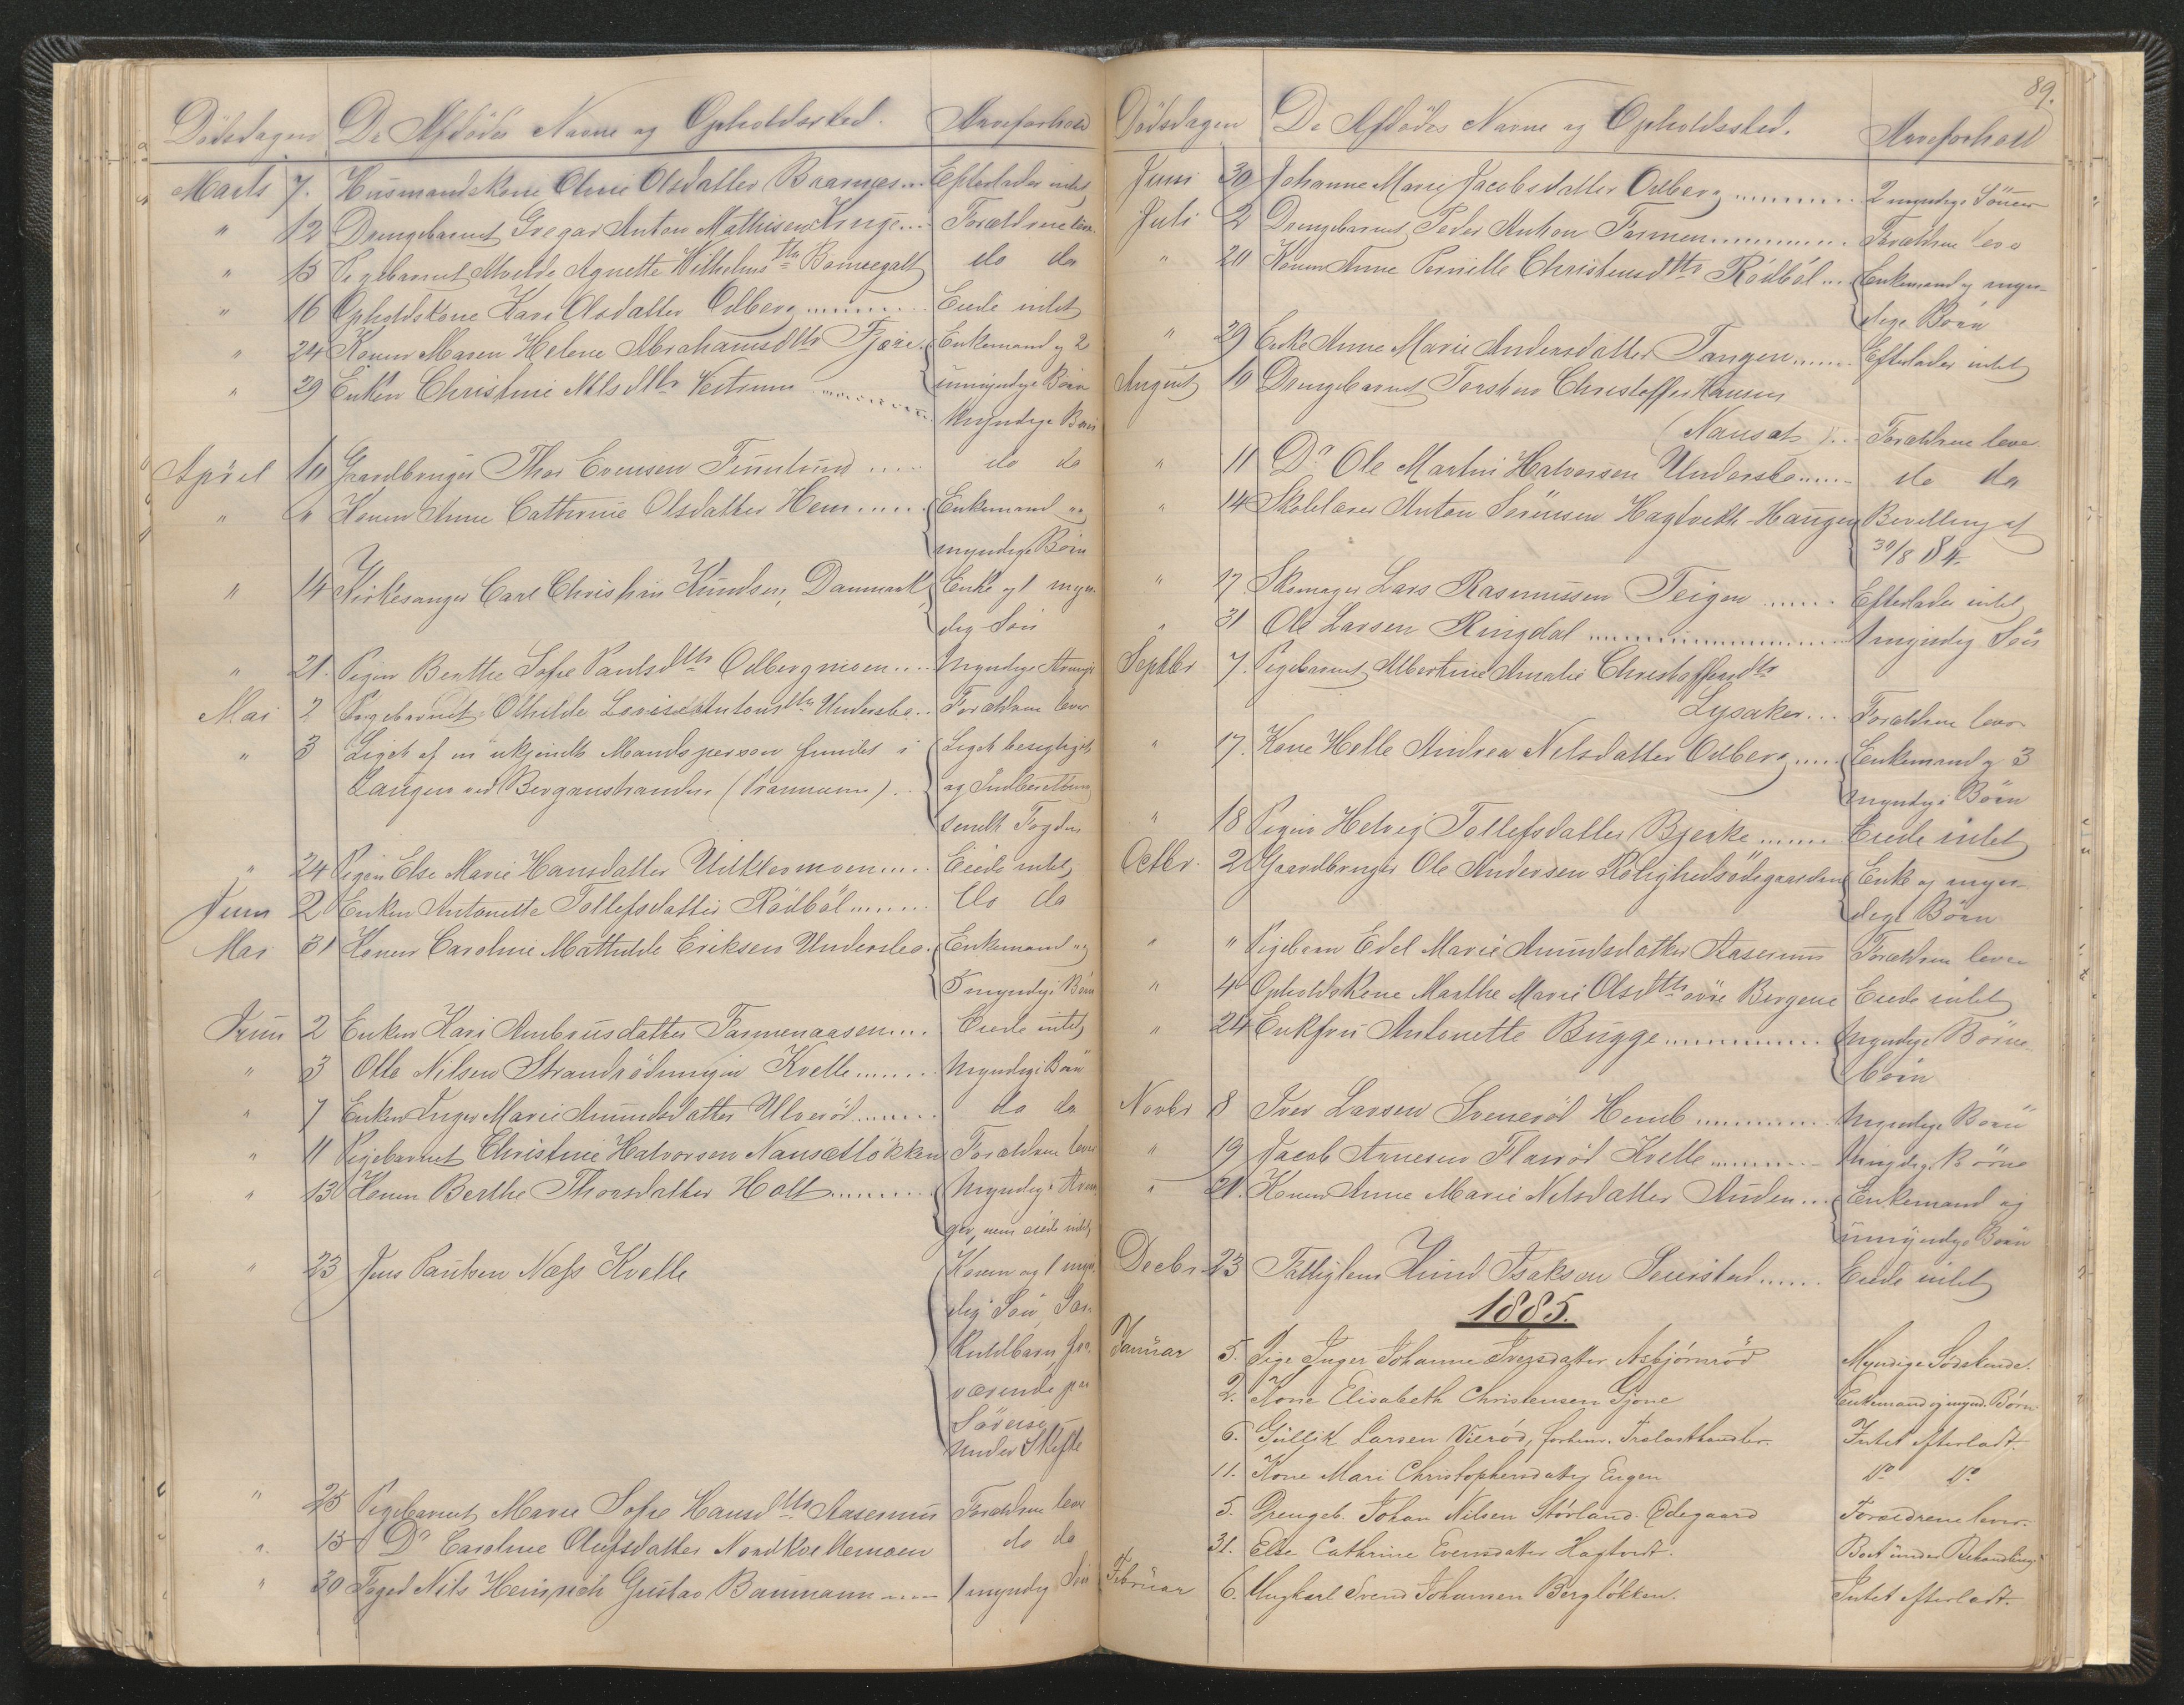 Dödsdagen De Afdödes Navne og Opholdssted. Arveforhold
Marts 7. Husmandskone Olsdatter Efterlader intet
" 12 Drengebarnet Gregar Anton Mathisen Kruge... Forældrene lever
" 15 Pigebarnet Agnette Wilhelms dtr do do
" 16 Opholdskone Kari Olsdatter Odberg ...... Eiede intet
" 24 Konen Maren Helene Abrahamsdtr Fjære. Enkemand og 2
umyndige Børn
" 29 Enken Christine Nilsdtr Vestrum ...... Myndige Børn
April 10 Gaardbruger Thor Evensen ..... do do
" " Konen Anne Cathrine Olsdatter Hem ..... Enkemand og
myndige Börn
" 14 Kirkesanger Carl Christian Knudsen, Danmark Enke og 1 myn-
dig Sön
" 21. Pigen Berthe Sofie Paulsdtr Odbergmoen.... Myndige Arvinger
Mai 2 Pigebarnet Othilde Lovise Antonsdtr Undersbo.. Forældrene lever
" 3 Liget af en ukjendt Mandsperson fundet i Liget besigtiget
Laugen ved Berganstranden (Pramann).. og Indberetning
sendt Fogden
" 24 Pigen Else Marie Hansdatter ..... Eiede intet
Juni 2 Enken Antonette Tollefsdatter Rödböl ....... do do
Mai 31 Konen Caroline Mathilde Eriksen Undersbo. Enkemand og
5 myndige Börn
Juni 2 Enken Kari Ambrusdatter Farmenaasen.... Eiede intet
" 3 Otto Nilsen Strandrödningen Kvelle....... Myndige Börn
" 7 Enken Inger Marie Amundsdatter Ulveröd....... do do
" 11 Pigebarnet Christine Halvorsen Nansetlökken Forældrene lever
" 13 Konen Berthe Thorsdatter Holt......... Myndige Arvin-
ger, men eiede intet
" 23 Jens Paulsen Næss Kvelle Konen og 1 myn-
dig Sön, Sær-
kuldbarn, fra-
værende paa
Söreise -
Under Skifte
" 25 Pigebarnet Marie Sofie Hansdtr Aaserum Forældrene lever
" 15 Do Caroline Olufsdatter do do
" 30 Foged Nils Heinrich Gustav Baumann ..... 1 myndig Sön
89.
Dödsdagen De Afdödes Navne og Opholdssted. Arveforhold
Juni 30 Johanne Marie Jacobsdatter Odberg ......... 2 myndige Sönner
Juli 2 Drengebarnet Peder Anton Farmen............ Forældrene leve
" 20 Konen Anne Pernille Christensdtr Rödböl... Enkemand og myn-
dige Börn
" 29 Enke Anne Marie Andersdatter Tangen...... Efterlader intet
August 10 Drengebarnet Torsten Christoffer Hansen
(Nanset)... Forældrene leve
" 11 Do Ole Martin Halvorsen Undersbo...... do do
" 14 Skolelærer Anton Sörensen Hagtveth-Haugen Bevilling af
30/8 84.
" 17 Skomager Lars Rasmussen Teigen ...... Efterlader intet
" 31 Ole Larsen Ringdal ................ 1 myndig Sön
Septbr 7. Pigebarnet Albertine Amalie Christoffersdtr
Lysaker... Forældrene lever
" 17. Kone Helle Andrea Nilsdatter Odberg..... Enkemand og 3
myndige Börn
" 18 Pigen Helvig Tollefsdatter Bjerke ....... Eiede intet
Octbr. 2 Gaardbruger Ole Andersen Rolighedsödegaarden Enke og myn-
dige Börn
" " Pigebarn Edel Marie Amundsdatter Aaserum Forældrene lever
" 4 Opholdskone Marthe Marie Olsdtr övre Bergene Eiede intet
" 24 Enkfru Antonette Bugge............. Myndige Börne-
börn
Novbr 8 Iver Larsen Sveneröd Hemb .......... Myndige Börn
" 19 Jacob Arnesen Flaeröd Kvelle.......... Myndige Börn
" 21. Konen Anne Marie Nilsdatter Auden... Enkemand og
umyndige Börn
Decbr 23 Fattiglem Knud Isaksen Seierstad...... Eiede intet
1885.
Januar 5. Pige Inger Johanne Iversdatter Asbjörnröd Myndige Södskende.
2. Kone Elisabeth Christensen Gjone Enkemand og mynd. Börn
6. Gullik Larsen Vieröd, forhenv. Trælasthandler. Intet efterladt.
11. Kone Mari Christophersdatter Eugen Do Do
5. Drengeb. Johan Nilsen Störland. Ödegaard Forældrene lever.
31. Else Cathrine Evensdatter Hagtvedt. Boet under Behandling.
Februar 6. Ungkarl Svend Johansen Berglökken. Intet efterladt.